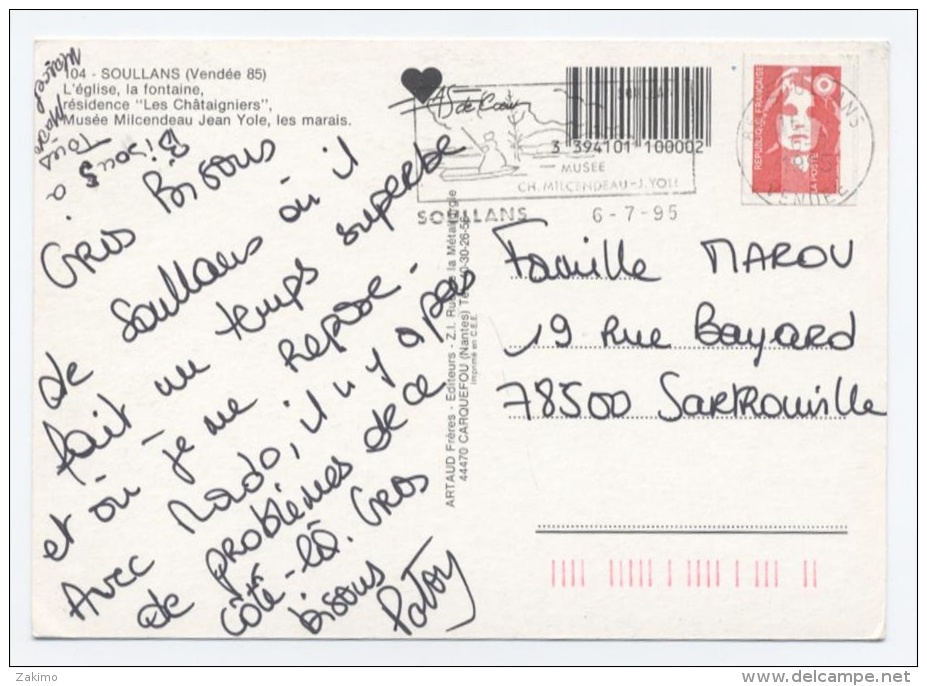 104 - SOULLANS (Vendée 85)
L'église, la fontaine,
résidence "Les Châtaigniers",
Musée Milcendeau Jean Yole, les marais.
Bisous
à Tous
Gros Bisous
de Soullans où il
fait un temps superbe
et où je me repose.
Avec Nado, il n'y a pas
de problèmes de ce
côté-là. Gros
bisous
ARTAUD Frères - Editeurs - Z.I. Rue de la Métallurgie
44470 CARQUEFOU (Nantes)
Imprimé en C.E.E.
As de Cœur
3 394101 100002
MUSÉE
CH. MILCENDEAU - J. YOLE
SOULLANS
6-7-95
RÉPUBLIQUE FRANÇAISE
LA POSTE
SOULLANS
VENDEE
Famille MAROU
19 Rue Bayard
78500 Sartrouville
Zakimo
delcampe.net